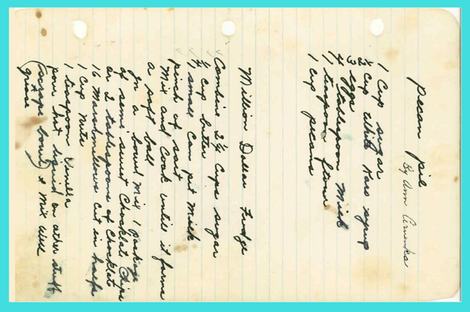 pecan pie
By Ann
1 Cup sugar
1/2 Cup White Karo syrup
3 eggs
4 tablespoon Milk
1 teaspoon flour
1 cup pecans
Million Dollar Fudge
Combine 2 1/4 Cups sugar
1/4 cup butter
1/2 small can pet Milk
pinch of salt
Mix and Cook until it forms
a soft ball
In a bowl Mix 1 package
of semi sweet Chocolate Chips
or 2 tablespoons of Chocolet
16 Marshmallows Cut in halfs
1 Cup nuts
1 teaspoon Vanilla
pour hot liquid in over stuff
in bowl & Mix well